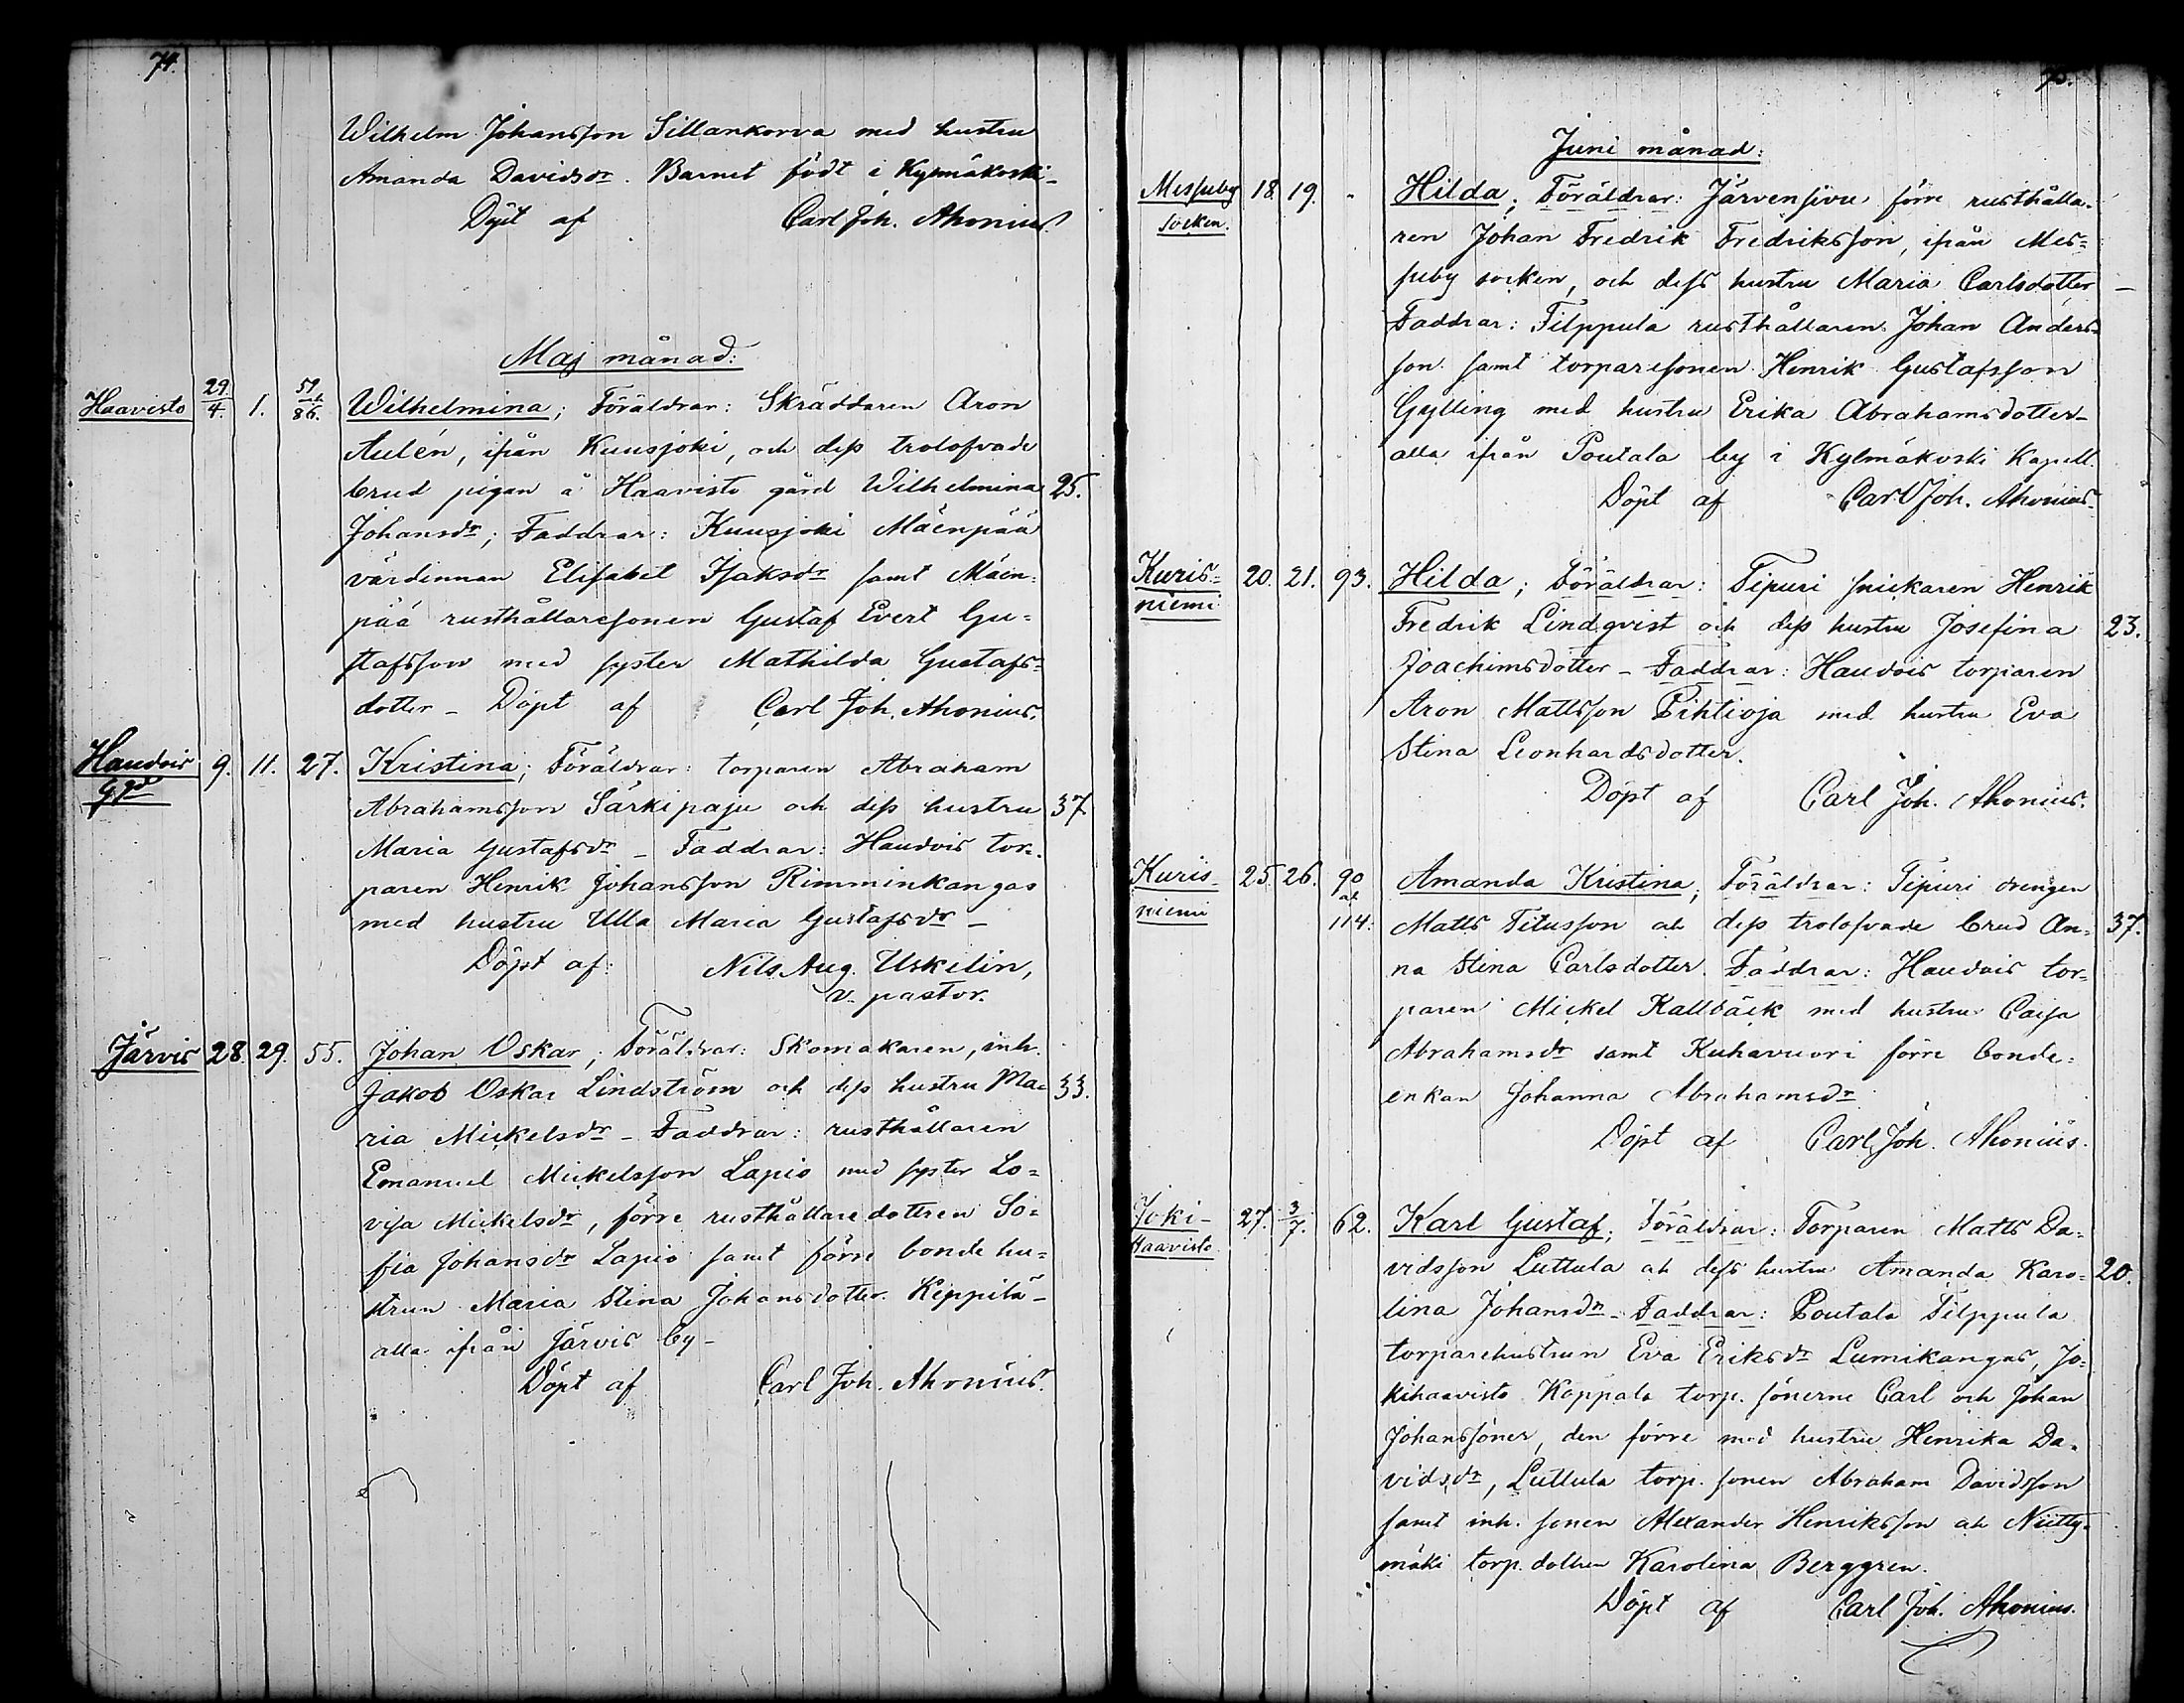 74.
Wilhelm Johansson Sillankorva med hustru
Amanda Davidsdr. Barnet födt i Kylmäkoski_
Döpt af Carl Joh. Ahonius.
Maj månad:
Haavisto 29/4. 1. 59 och 86. Wilhelmina; Föräldrar: Skräddaren Aron
Aulén, ifrån Kuusjoki, och dess trolofvade
brud pigan å Haavisto gård Wilhelmina 25.
Johansdr; Faddrar: Kuusjoki Mäenpää
värdinnan Elisabet Isaksdr samt Mäen=
pää rusthållaresonen Gustaf Evert Gu=
stafsson med syster Mathilda Gustafs=
dotter _ Döpt af Carl Joh. Ahonius.
Haudois 9. 11. 27. Kristina; Föräldrar: torparen Abraham
Ggd Abrahamsson Särkipaju och dess hustru 37
Maria Gustafsdr _ Faddrar: Haudois tor=
paren Henrik Johansson Rimminkangas
med hustru Ulla Maria Gustafsdr _
Döpt af: Nils Aug. Uskelin,
v. pastor.
Järvis 28. 29. 55. Johan Oskar; Föräldrar: Skomakaren, inh.
Jakob Oskar Lindström och dess hustru Ma= 33.
ria Mickelsdr _ Faddrar: rusthållaren
Emanuel Mickelsson Lapio med syster Lo=
visa Mickelsdr, förre rusthållaredottren So=
fia Johansdr Lapio samt förre bondehu=
strun Maria Stina Johansdotter Keppilä _
alla ifrån Järvis by _
Döpt af Carl Joh. Ahonius.
75.
Juni månad:
Messuby 18. 19. Hilda; Föräldrar: Järvensivu förre rusthålla=
socken. ren Johan Fredrik Fredriksson, ifrån Mes=
suby socken, och dess hustru Maria Carlsdotter _
Faddrar: Filppula rusthållaren Johan Anders=
son samt torparesonen Henrik Gustafsson
Gylling med hustru Erika Abrahamsdotter _
alla ifrån Poutala by i Kylmäkoski Kapell.
Döpt af Carl Joh. Ahonius.
Kuris= 20. 21. 93. Hilda; Föräldrar: Tipuri snickaren Henrik
niemi Fredrik Lindqvist och dess hustru Josefina 23.
Joachimsdotter _ Faddrar: Haudois torparen
Aron Mattsson Pihtioja med hustru Eva
Stina Leonhardsdotter.
Döpt af Carl Joh. Ahonius.
Kuris= 25. 26. 90 Amanda Kristina; Föräldrar: Tipuri drengen
niemi och 114. Matts Titusson och dess trolofvade brud An= 37.
na Stina Carlsdotter. Faddrar: Haudois tor=
paren Mickel Kallbäck med hustru Caisa
Abrahamsdr samt Kuhavuori förre bonde=
enkan Johanna Abrahamsdr
Döpt af Carl Joh. Ahonius.
Joki- 27. 3/7. 62. Karl Gustaf; Föräldrar: Torparen Matts Da=
Haavisto vidsson Luttula och dess hustru Amanda Karo= 20.
lina Johansdr _ Faddrar: Poutala Filppula
torparehustrun Eva Eriksdr Lumikangas, Jo=
kihaavisto Koppala torp. sönerne Carl och Johan
Johanssöner, den förre med hustru Henrika Da=
vidsdr, Luttula torp. sonen Abraham Davidsson
samt inh. sonen Alexander Henriksson och Niitty=
mäki torp. dottren Karolina Berggren.
Döpt af Carl Joh. Ahonius.